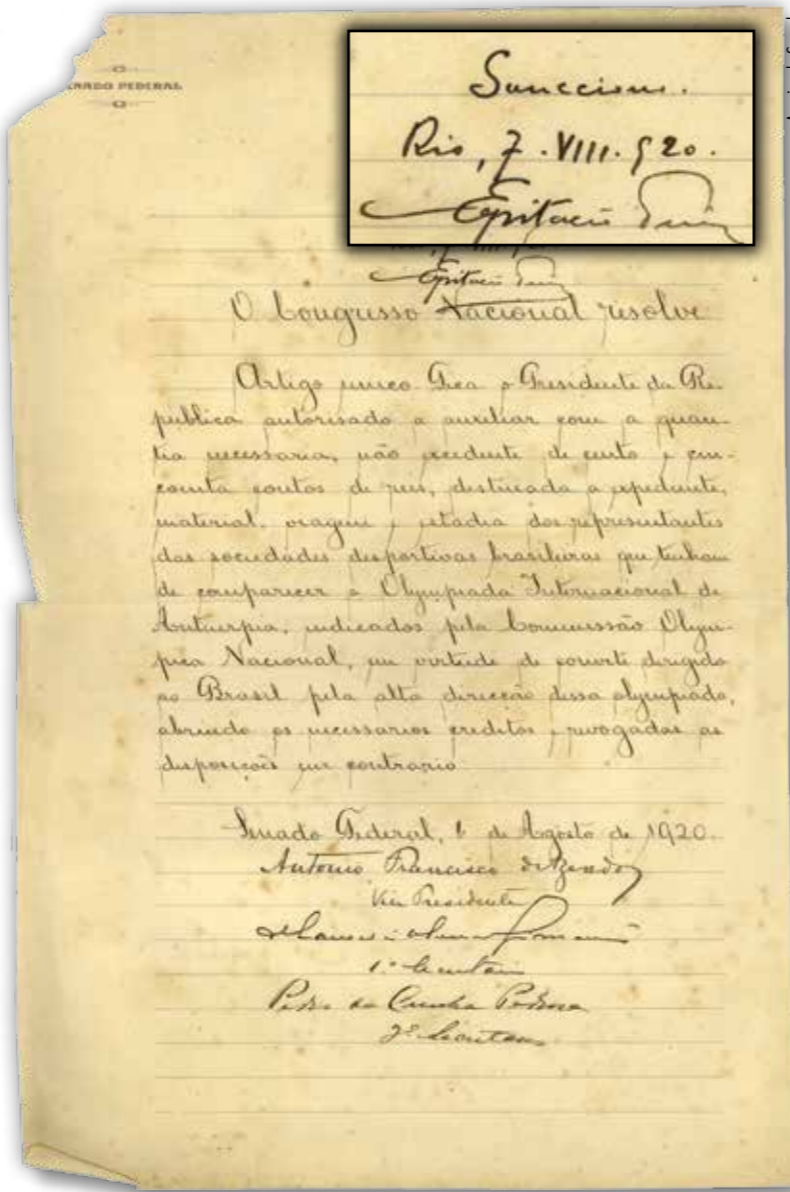 NADO FEDERAL
Sancciono.
Rio, 7.VIII.920.
Epitacio
Epitacio
O Congresso Nacional resolve
Artigo unico Fica o Presidente da Re-
publica autorisado a auxiliar com a quan-
tia necessaria, não excedente de cento e cin-
coenta contos de reis, destinada a expediente,
material, viagem e estadia dos representantes
das sociedades desportivas brasileiras que tenham
de comparecer a Olympiada Internacional de
Antuerpia, indicados pela Commissão Olym-
pica Nacional, em virtude de convite dirigido
ao Brasil pela alta direcção dessa olympiada,
abrindo os necessarios creditos e revogadas as
disposições em contrario
Senado Federal, 6 de Agosto de 1920.
Antonio Francisco de Azeredo
Vice Presidente
1º Secretario
Pedro da Cunha Pedrosa
2º Secretario